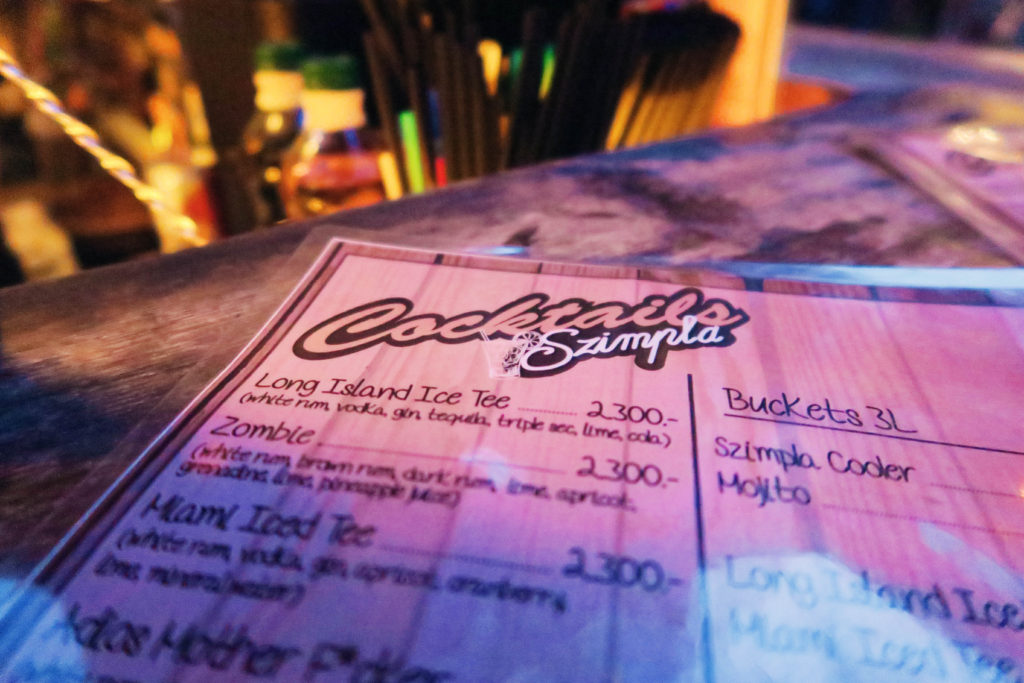 Cocktails
Szimpla
Long Island Ice Tee ........ 2.300.-
(white rum, vodka, gin, tequila, triple sec, lime, cola)
Zombie ........ 2.300.-
(white rum, brown rum, dark rum, lime, apricot,
grenadine, lime, pineapple juice)
Miami Iced Tee ........ 2.300.-
(white rum, vodka, gin, apricot, cranberry,
lime, mineral water)
Mother
Buckets 3L
Szimpla Cooler ........
Mojito ........
Long Island Ice
Miami Iced Tee